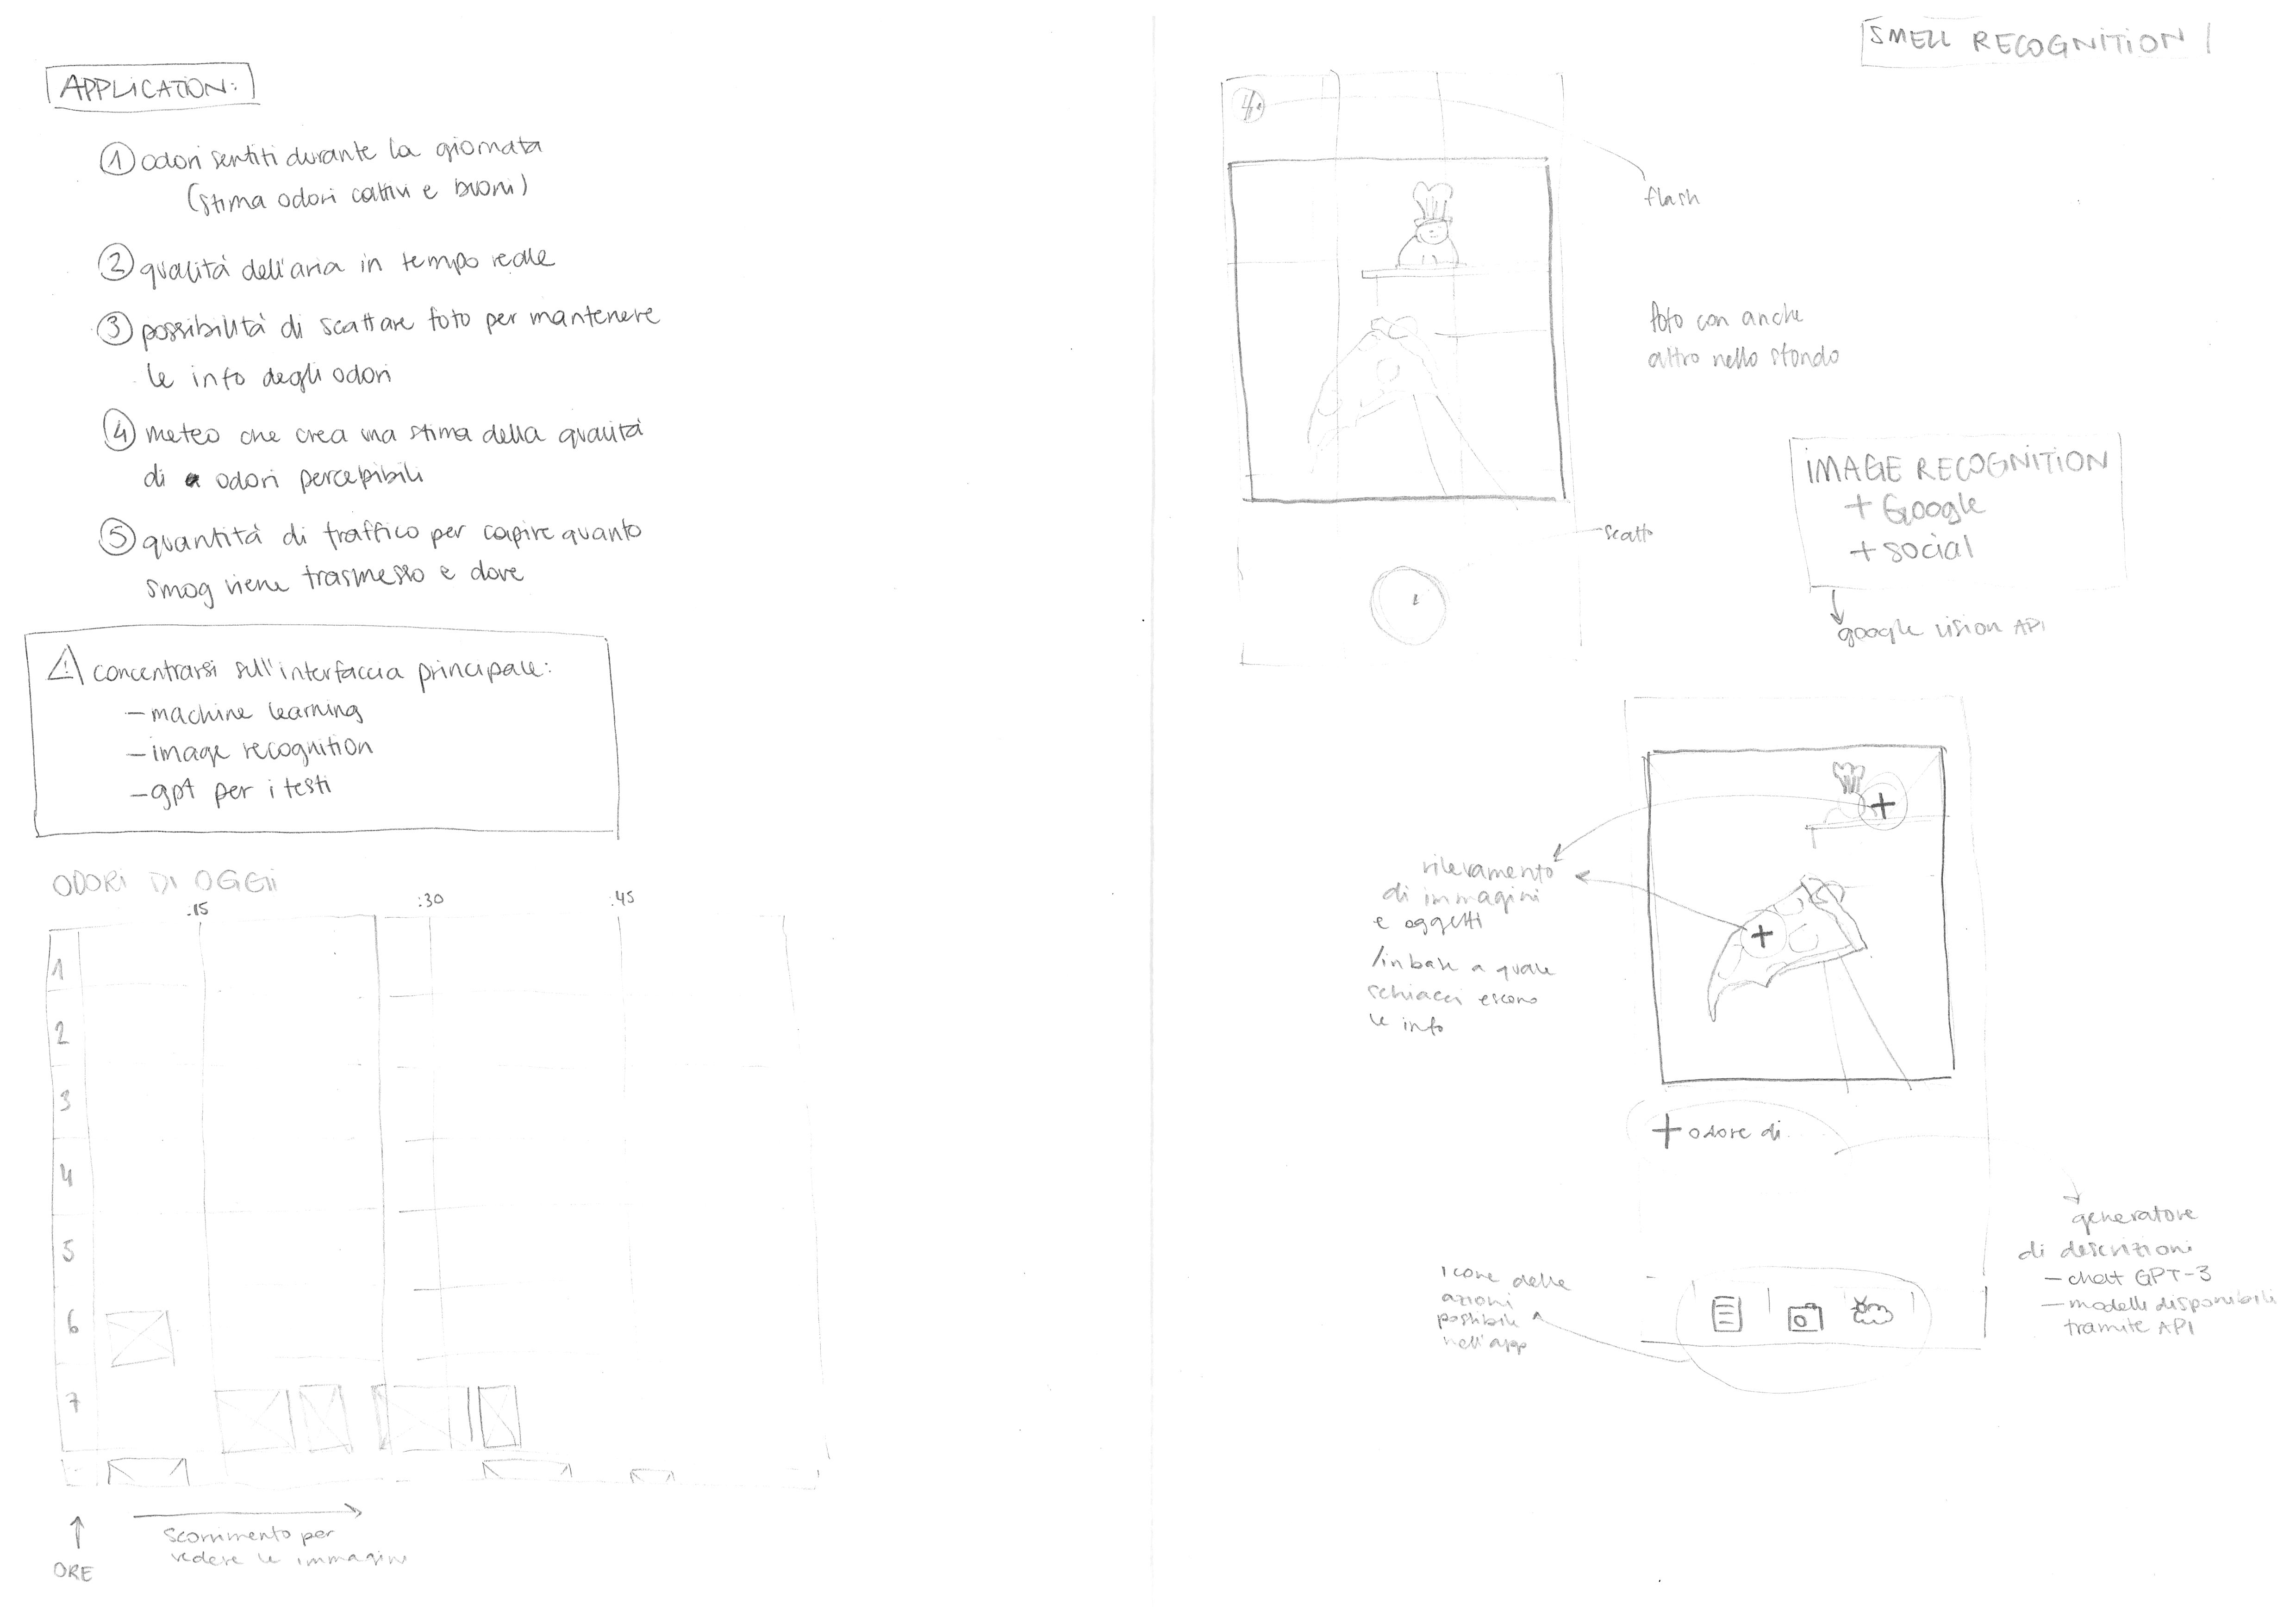 APPLICATION:
① odori sentiti durante la giornata
(stima odori cattivi e buoni)
② qualità dell'aria in tempo reale
③ possibilità di scattare foto per mantenere
le info degli odori
④ meteo che crea una stima della qualità
di odori percepibili
⑤ quantità di traffico per capire quanto
smog viene trasmesso e dove
⚠ concentrarsi sull'interfaccia principale:
– machine learning
– image recognition
– gpt per i testi
ODORI DI OGGI
:15 :30 :45
1
2
3
4
5
6
7
ORE
scorrimento per
vedere le immagini
SMELL RECOGNITION
flash
foto con anche
altro nello sfondo
scatto
IMAGE RECOGNITION
+ Google
+ social
google vision API
rilevamento
di immagini
e oggetti
/in base a quale
schiacci escono
le info
+ odore di
generatore
di descrizioni
– chat GPT-3
– modelli disponibili
tramite API
icone delle
azioni
possibili
nell'app